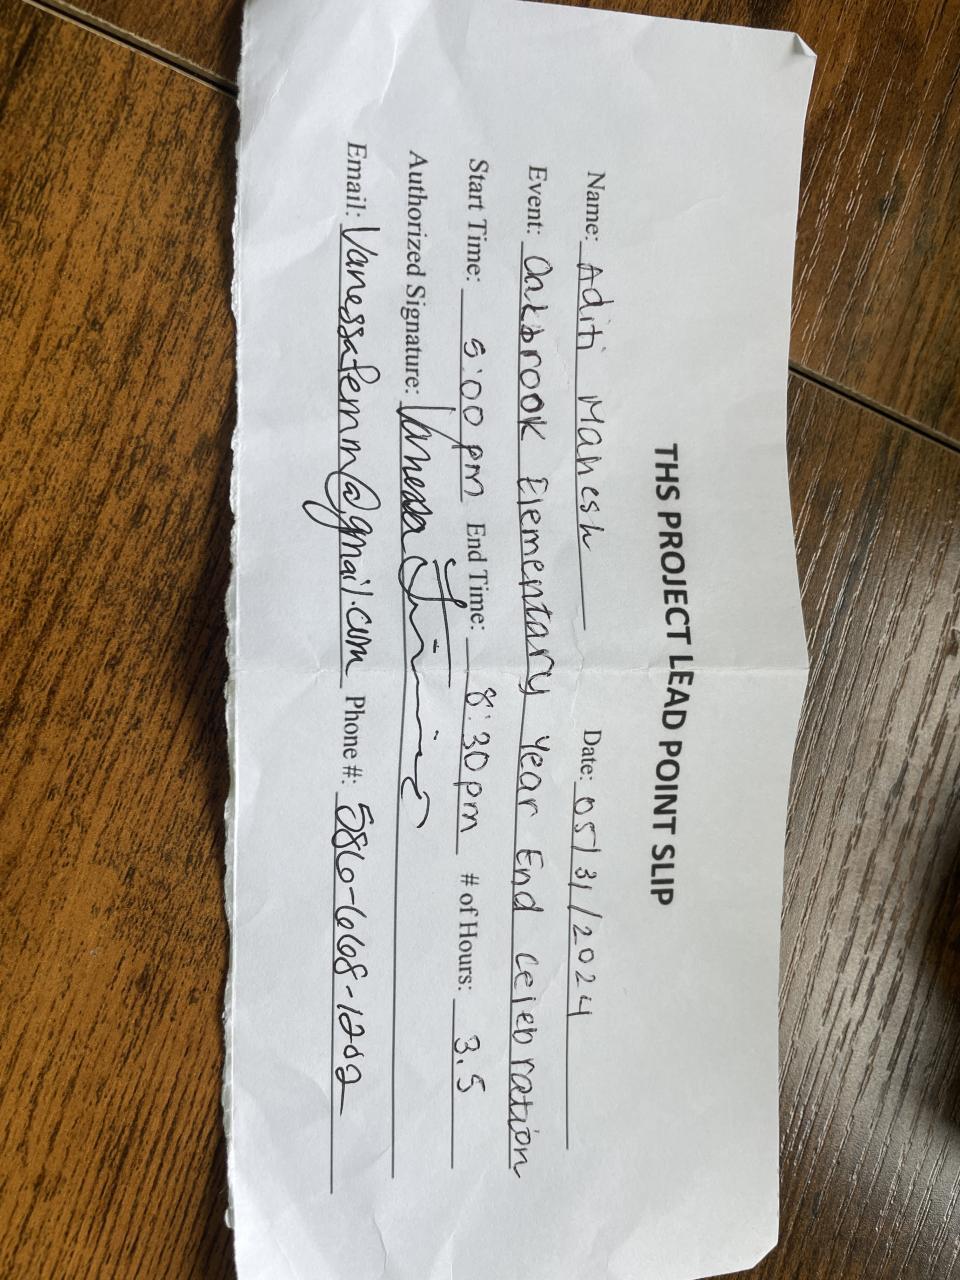 THS PROJECT LEAD POINT SLIP
Name: Aditi Mahesh Date: 05/31/2024
Event: Oakbrook Elementary Year End Celebration
Start Time: 5:00 pm End Time: 8:30pm # of Hours: 3.5
Authorized Signature: Vanessa
Email: Vanessafernn@gmail.com Phone #: 586-668-1202